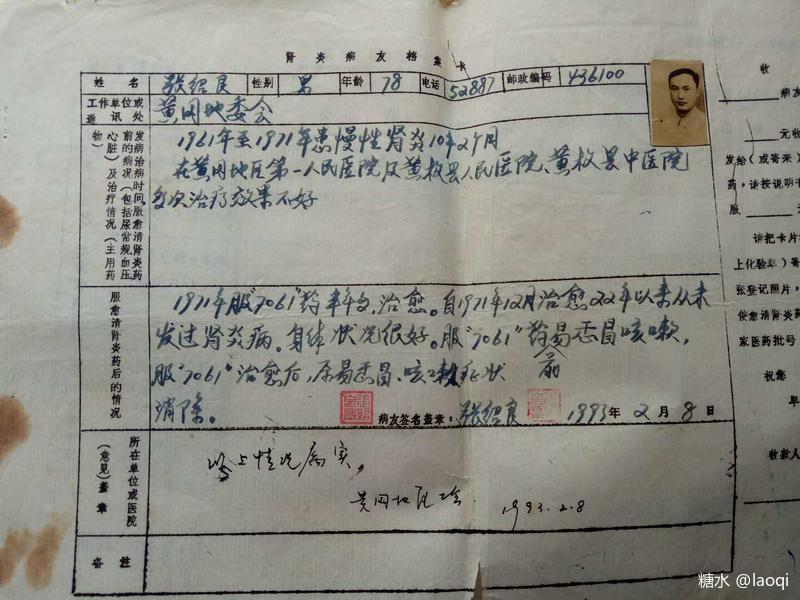 肾炎病友档案卡
姓名 张绍良 性别 男 年龄 78 电话 52887 邮政编码 436100
工作单位或通讯处 黄冈地委会
发病治病时间,服愈清肾炎药前的病况(包括尿常规血压心脏)及治疗情况(主用药物)
1961年至1971年患慢性肾炎10年2个月
在黄冈地区第一人民医院及黄梅县人民医院、黄梅县中医院
多次治疗效果不好
服愈清肾炎药后的情况
1971年服"7061"药半年多,治愈。自1971年12月治愈,22年以来从未
发过肾炎病。身体状况很好。服"7061"药前易感冒咳嗽,
服"7061"治愈后,原易感冒、咳嗽症状
消除。
病友签名盖章:张绍良 1993年2月8日
所在单位或医院(意见)盖章
以上情况属实,
黄冈地区 1993.2.8
备注
收
病友
元收
发给(或寄来)
药,请按说明书
服
请把卡片
上化验单)寄
张登记照片,
使愈清肾炎药
家医药批号
祝您
早
收款人
糖水 @laoqi